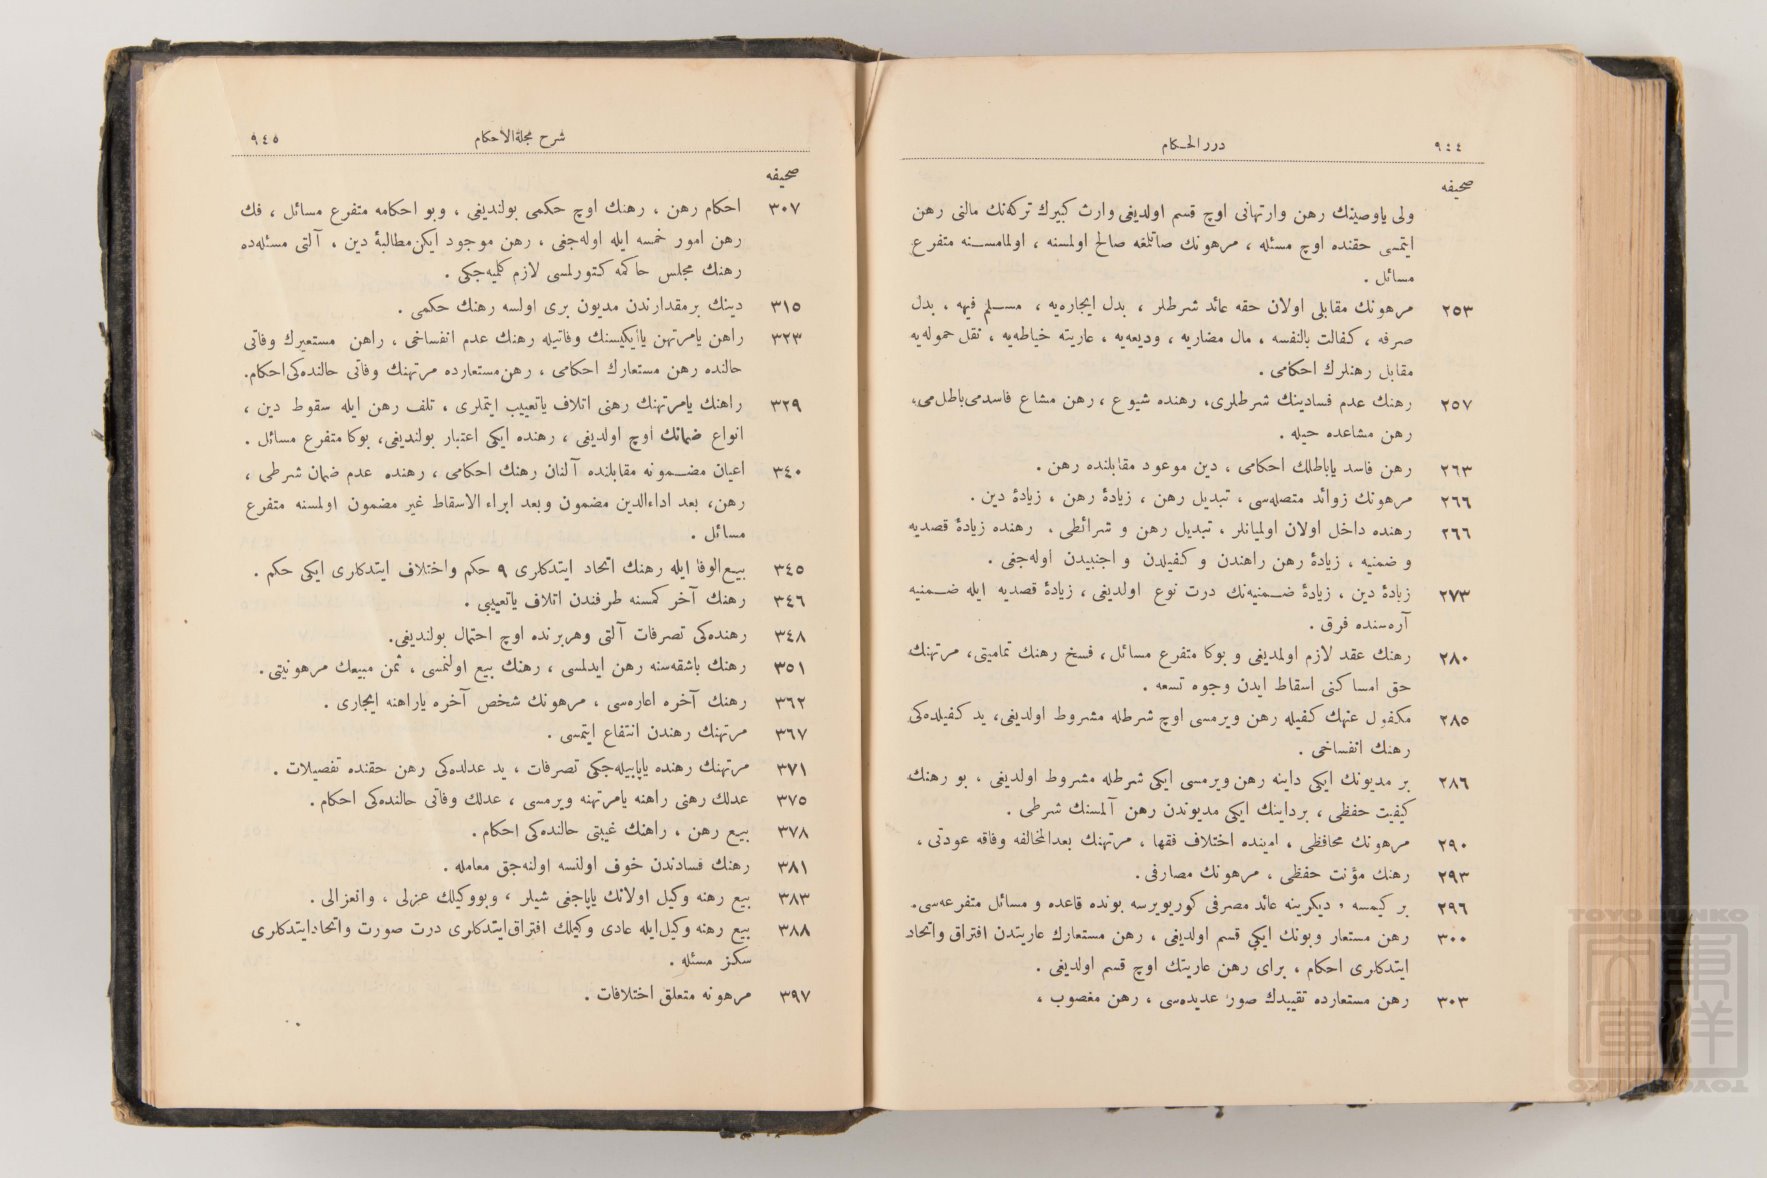 ٩٤٤
درر الحكام
صحیفه
ولی یاوصینك رهن وارتهانی اوچ قسم اولدیغی وارث كبیرك تركه‌نك مالنی رهن
ایتمسی حقنده اوچ مسئله ، مرهونك صاتلغه صالح اولمسنه ، اولمامسنه متفرع
مسائل .
٢٥٣ مرهونك مقابلی اولان حقه عائد شرطلر ، بدل ایجاره‌یه ، مسلم فیهه ، بدل
صرفه ، كفالت بالنفسه ، مال مضاربه ، ودیعه‌یه ، عاریته خیاطه‌یه ، نقل حموله‌یه
مقابل رهنلرك احكامی .
٢٥٧ رهنك عدم فسادینك شرطلری، رهنده شیوع ، رهن مشاع فاسدمی‌باطل‌می،
رهن مشاعده حیله .
٢٦٣ رهن فاسد یاباطلك احكامی ، دین موعود مقابلنده رهن .
٢٦٦ مرهونك زوائد متصله‌سی ، تبدیل رهن ، زیادهٔ رهن ، زیادهٔ دین .
٢٦٦ رهنده داخل اولان اولمیانلر ، تبدیل رهن و شرائطی . رهنده زیادهٔ قصدیه
و ضمنیه ، زیادهٔ رهن راهندن و كفیلدن و اجنبیدن اوله‌جغی .
٢٧٣ زیادهٔ دین ، زیادهٔ ضمنیه‌نك درت نوع اولدیغی ، زیادهٔ قصدیه ایله ضمنیه
آره‌سنده فرق .
٢٨٠ رهنك عقد لازم اولمدیغی و بوكا متفرع مسائل ، فسخ رهنك تمامیتی، مرتهنك
حق امساكنی اسقاط ایدن وجوه تسعه .
٢٨٥ مكفول عنهك كفیله رهن ویرمسی اوچ شرطله مشروط اولدیغی، ید كفیلده‌كی
رهنك انفساخی .
٢٨٦ بر مدیونك ایكی داینه رهن ویرمسی ایكی شرطله مشروط اولدیغی ، بو رهنك
كیفیت حفظی ، برداینك ایكی مدیوندن رهن آلمسنك شرطی .
٢٩٠ مرهونك محافظی ، امینده اختلاف فقها ، مرتهنك بعدالمخالفه وفاقه عودتی ،
٢٩٣ رهنك مؤنت حفظی ، مرهونك مصارفی .
٢٩٦ بر كیمسه ، دیكرینه عائد مصرفی كوریویرسه بونده قاعده و مسائل متفرعه‌سی.
٣٠٠ رهن مستعار وبونك ایكی قسم اولدیغی ، رهن مستعارك عاریتدن افتراق واتحاد
ایتدكلری احكام ، برای رهن عاریتك اوچ قسم اولدیغی .
٣٠٣ رهن مستعارده تقییدك صور عدیده‌سی ، رهن مغصوب ،
شرح مجلة الاحكام
٩٤٥
صحیفه
٣٠٧ احكام رهن ، رهنك اوچ حكمی بولندیغی ، وبو احكامه متفرع مسائل ، فك
رهن امور خمسه ایله اوله‌جغی ، رهن موجود ایكن‌مطالبهٔ دین ، آلتی مسئله‌ده
رهنك مجلس حاكمه كتورلمسی لازم كلمیه‌جكی .
٣١٥ دینك برمقدارندن مدیون بری اولسه رهنك حكمی .
٣٢٣ راهن یامرتهن یاایكیسنك وفاتیله رهنك عدم انفساخی ، راهن مستعیرك وفاتی
حالنده رهن مستعارك احكامی ، رهن‌مستعارده مرتهنك وفاتی حالنده‌كی‌احكام.
٣٢٩ راهنك یامرتهنك رهنی اتلاف یاتعییب ایتملری ، تلف رهن ایله سقوط دین ،
انواع ضمانك اوچ اولدیغی ، رهنده ایكی اعتبار بولندیغی، بوكا متفرع مسائل .
٣٤٠ اعیان مضمونه مقابلنده آلنان رهنك احكامی ، رهنده عدم ضمان شرطی ،
رهن، بعد اداءالدین مضمون وبعد ابراء الاسقاط غیر مضمون اولمسنه متفرع
مسائل .
٣٤٥ بیع‌الوفا ایله رهنك اتحاد ایتدكلری ٩ حكم واختلاف ایتدكلری ایكی حكم .
٣٤٦ رهنك آخر كمسنه طرفندن اتلاف یاتعییبی .
٣٤٨ رهنده‌كی تصرفات آلتی وهربرنده اوچ احتمال بولندیغی.
٣٥١ رهنك باشقه‌سنه رهن ایدلمسی ، رهنك بیع اولنمسی ، ثمن مبیعك مرهونیتی.
٣٦٢ رهنك آخره اعاره‌سی ، مرهونك شخص آخره یاراهنه ایجاری .
٣٦٧ مرتهنك رهندن انتفاع ایتمسی .
٣٧١ مرتهنك رهنده یاپابیله‌جكی تصرفات ، ید عدلده‌كی رهن حقنده تفصیلات .
٣٧٥ عدلك رهنی راهنه یامرتهنه ویرمسی ، عدلك وفاتی حالنده‌كی احكام .
٣٧٨ بیع رهن ، راهنك غیبتی حالنده‌كی احكام .
٣٨١ رهنك فسادندن خوف اولنسه اولنه‌جق معامله .
٣٨٣ بیع رهنه وكیل اولانك یاپاجغی شیلر ، وبووكیلك عزلی ، وانعزالی .
٣٨٨ بیع رهنه وكیل‌ایله عادی وكیلك افتراق‌ایتدكلری درت صورت واتحادایتدكلری
سكز مسئله .
٣٩٧ مرهونه متعلق اختلافات .
TOYO BUNKO
東洋文庫
TOYO BUNKO